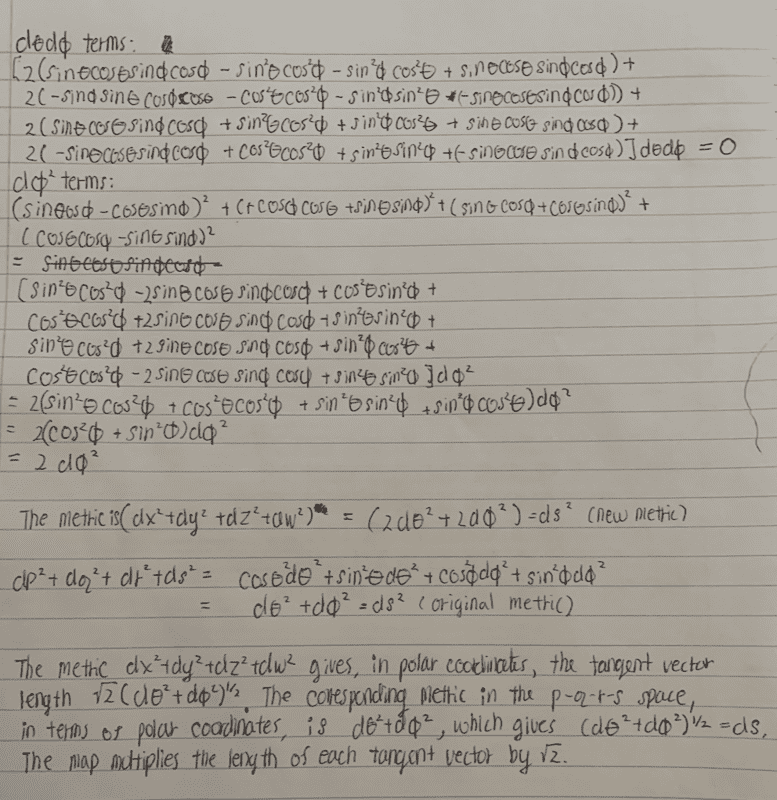 dθdφ terms:
[2(sinθcosθsinφcosφ - sin²θcos²φ - sin²φcos²θ + sinθcosθsinφcosφ) +
2(-sinφsinθcosφcosθ - cos²θcos²φ - sin²φsin²θ +(-sinθcosθsinφcosφ)) +
2(sinθcosθsinφcosφ + sin²θcos²φ + sin²φcos²θ + sinθcosθsinφcosφ) +
2(-sinθcosθsinφcosφ + cos²θcos²φ + sin²θsin²φ +(-sinθcosθsinφcosφ)]dθdφ = 0
dφ² terms:
(sinθcosφ - cosθsinφ)² + (+cosφcosθ + sinθsinφ)² + (sinθcosφ + cosθsinφ)² +
(cosθcosφ - sinθsinφ)²
= sinθcosθsinφcosφ -
[sin²θcos²φ - 2sinθcosθsinφcosφ + cos²θsin²φ +
cos²θcos²φ + 2sinθcosθsinφcosφ + sin²θsin²φ +
sin²θcos²φ + 2sinθcosθsinφcosφ + sin²φcos²θ +
cos²θcos²φ - 2sinθcosθsinφcosφ + sin²θsin²φ]dφ²
= 2(sin²θcos²φ + cos²θcos²φ + sin²θsin²φ + sin²φcos²θ)dφ²
= 2(cos²φ + sin²φ)dφ²
= 2dφ²
The metric is (dx²+dy²+dz²+dw²) = (2dθ²+2dφ²)=ds² (new metric)
dp²+dq²+dr²+ds² = cosθ²dθ²+sin²θdθ²+cos²φdφ²+sin²φdφ²
= dθ²+dφ²=ds² (original metric)
The metric dx²+dy²+dz²+dw² gives, in polar coordinates, the tangent vector
length √2(dθ²+dφ²)^1/2. The corresponding metric in the p-q-r-s space,
in terms of polar coordinates, is dθ²+dφ², which gives (dθ²+dφ²)^1/2=ds.
The map multiplies the length of each tangent vector by √2.